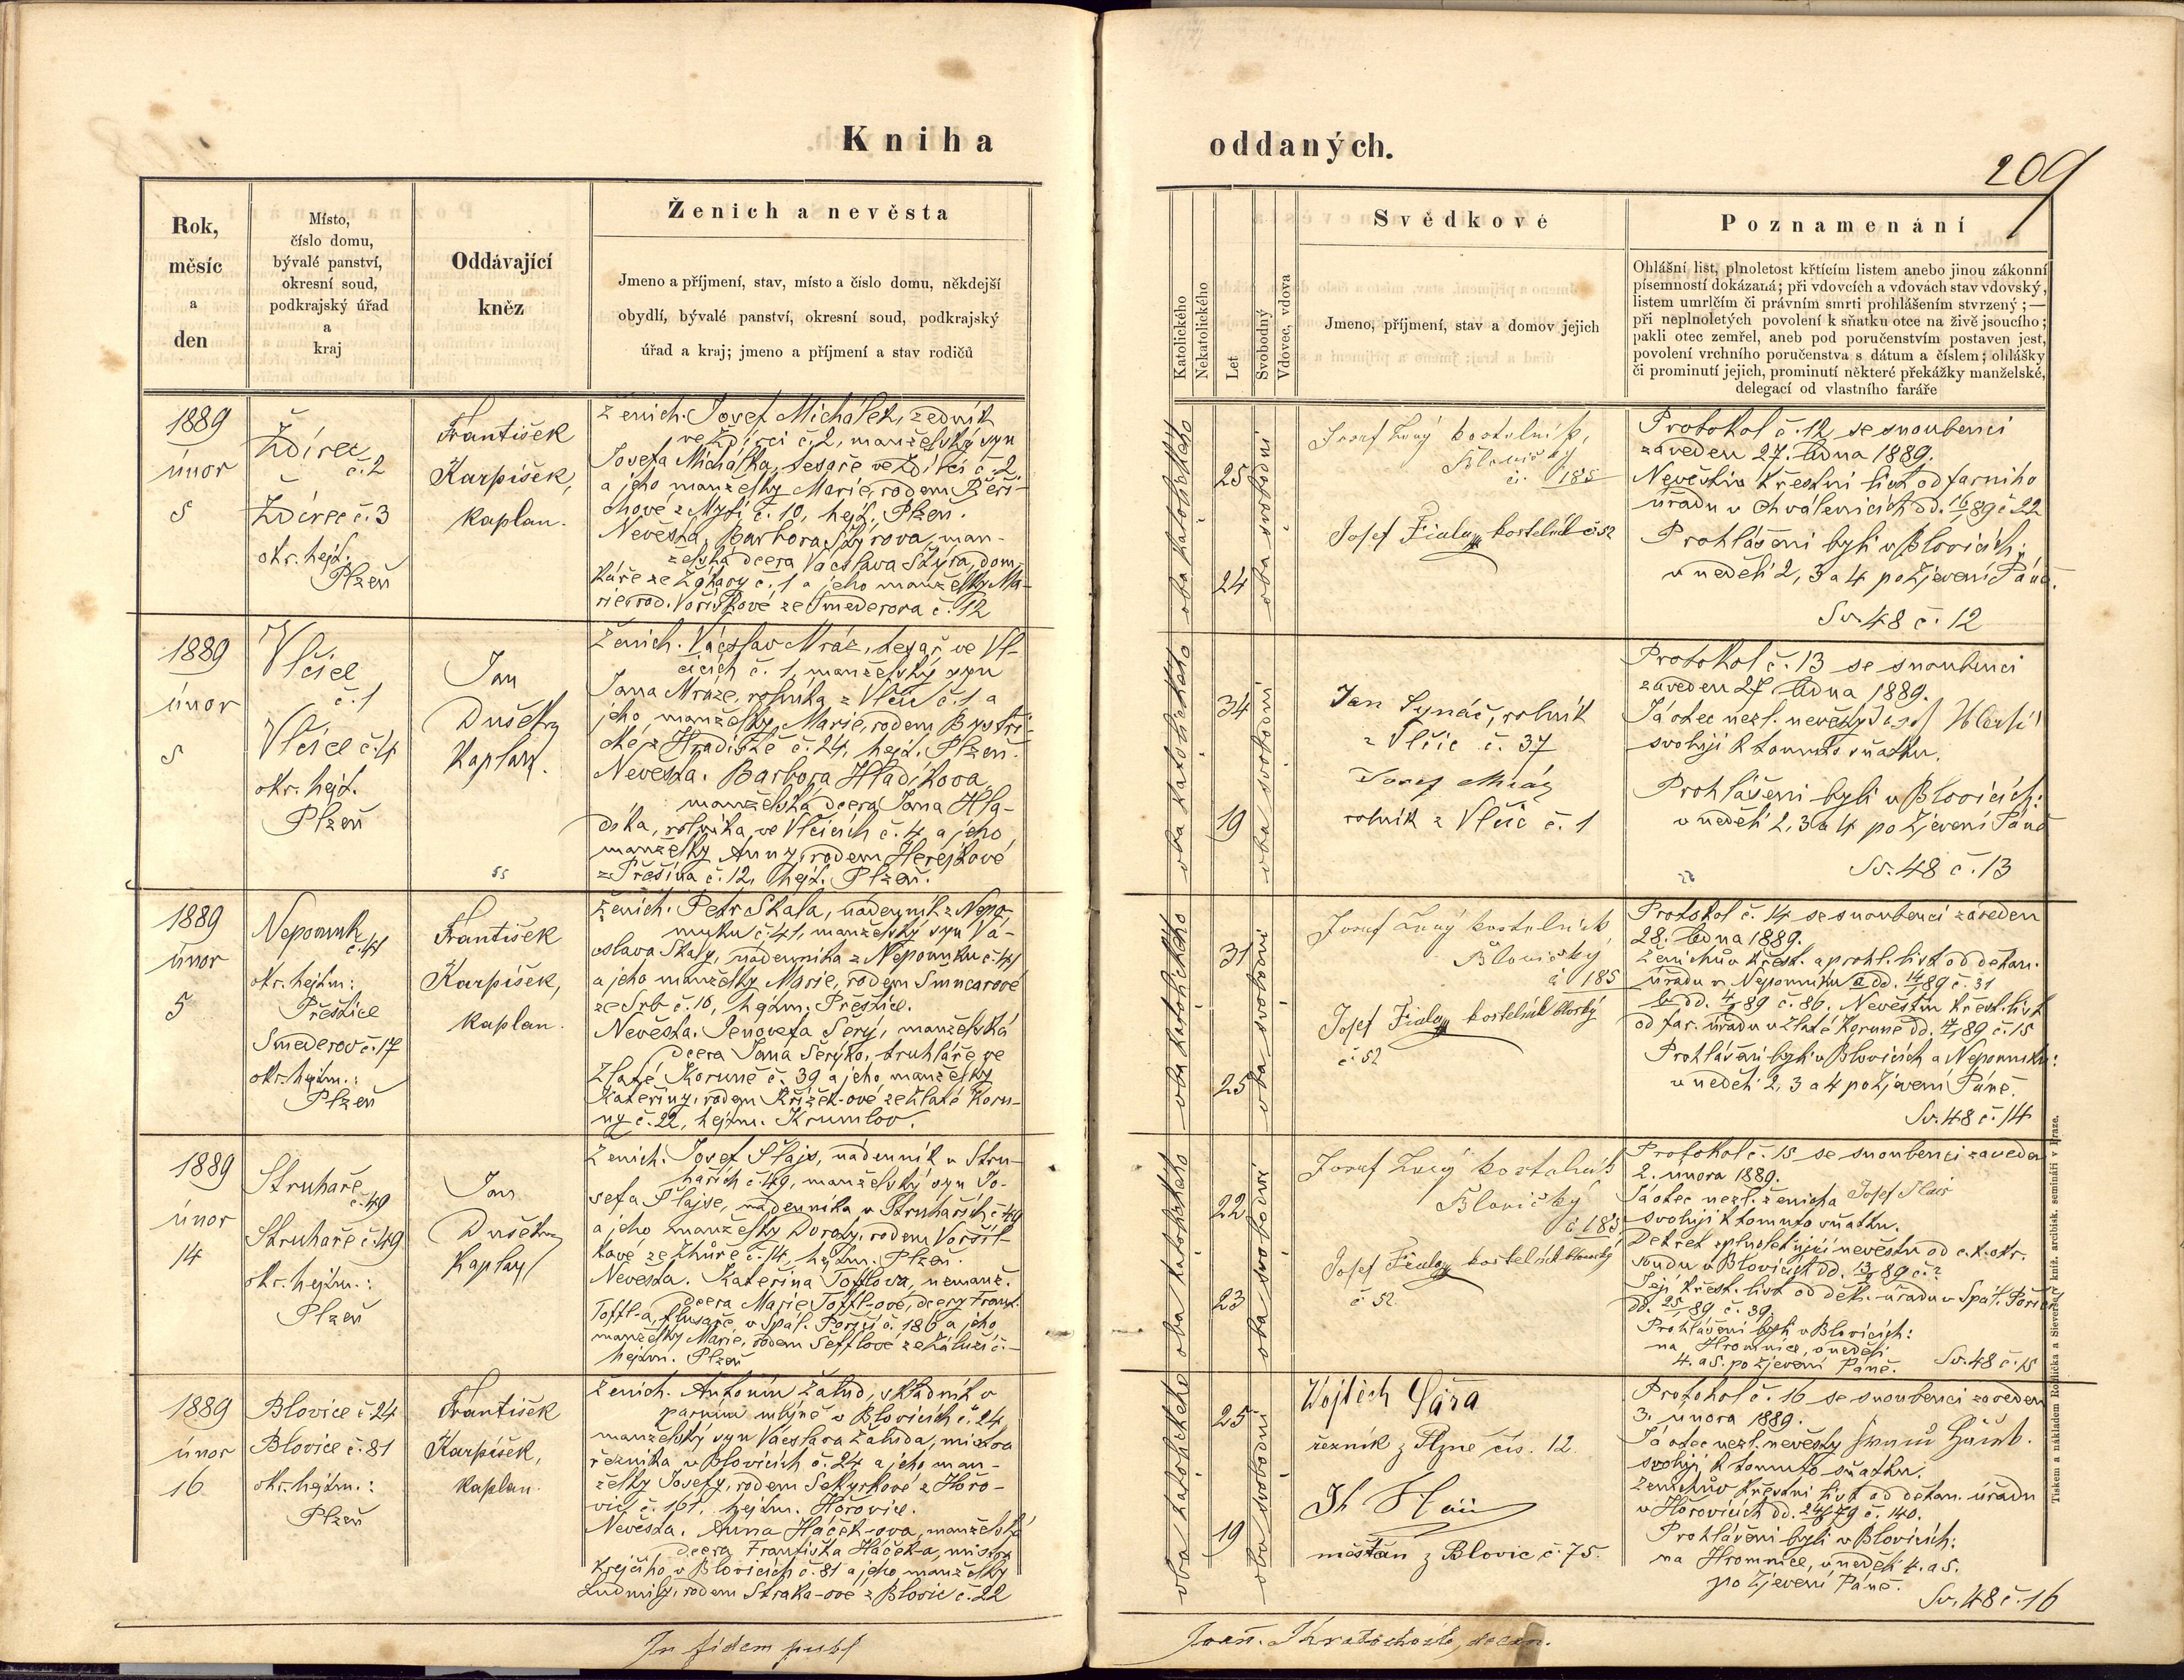 Kniha
oddaných.
209
Rok,
měsíc
a
den
Místo,
číslo domu,
bývalé panství,
okresní soud,
podkrajský úřad
a
kraj
Oddávající
kněz
Ženich a nevěsta
Jmeno a příjmení, stav, místo a čislo domu, někdejší
obydlí, bývalé panství, okresní soud, podkrajský
úřad a kraj; jmeno a příjmení a stav rodičů
Katolického
Nekatolického
Let
Svobodný
Vdovec, vdova
Svědkové
Jmeno, příjmení, stav a domov jejich
Poznamenání
Ohlášní list, plnoletost křtícím listem anebo jinou zákonní
písemností dokázaná; při vdovcích a vdovách stav vdovský,
listem umrlčím či právním smrti prohlášením stvrzený; —
při neplnoletých povolení k sňatku otce na živě jsoucího;
pakli otec zemřel, aneb pod poručenstvím postaven jest,
povolení vrchního poručenstva s dátum a číslem; ohlášky
či prominutí jejich, prominutí některé překážky manželské,
delegací od vlastního faráře
1889
únor
5
Ždírec
č. 2
Ždírec č. 3
okr. hejt.
Plzeň
František
Karpíšek,
kaplan.
Ženich. Josef Michálek, zedník
ve Ždírci č. 2, manželský syn
Josefa Michálka, tesaře ve Ždírci č. 2
a jeho manželky Marie, rodem
z Mytí č. 10, hejt. Plzeň.
Nevěsta. Barbora Štýrova, man-
želská dcera Václava Štýra, dom-
káře ze Ždkavy č. 1 a jeho manželky Ma-
rie rod. Voříškové ze Smederova č. 12
oba katolického
25
24
oba svobodní
Josef Luný kostelník,
Blovický
č. 185
Josef Fiala kostelník č 52
Protokol č. 12 se snoubenci
zaveden 27. ledna 1889.
Nevěstin křestní list od farního
úřadu v Chválenicích dd. 16/1 89 č 22
Prohlášeni byli v Blovicích:
v neděli 2, 3 a 4 po Zjevení Páně.
Sv. 48 č. 12
1889
únor
5
Vlčice
č. 1
Vlčice č. 4
okr. hejt.
Plzeň
Jan
Dušek
Kaplan.
Ženich. Václav Mráz, tesař ve Vl-
čicích č. 1, manželský syn
Jana Mráze, rolníka z Vlčic č. 1 a
jeho manželky Marie, rodem Bystři-
cké z Hradiště č. 24, hejt. Plzeň.
Nevěsta. Barbora Hladíkova,
manželská dcera Jana Hla-
díka, rolníka ve Vlčicích č. 4 a jeho
manželky Anny, rodem Herejkové
z Přešína č. 12, hejt. Plzeň.
oba katolického
34
19
oba svobodní
Jan Synáč, rolník
z Vlčic č. 37
Josef Mráz
rolník z Vlčic č. 1
Protokol č. 13 se snoubenci
zaveden 27. ledna 1889.
Já otec nezl. nevěsty
svoluji k tomuto sňatku.
Prohlášeni byli v Blovicích:
v neděli 2, 3 a 4 po Zjevení Páně
Sv. 48 č. 13
1889
únor
5
Nepomuk
č. 41
okr. hejtm:
Přeštice
Smederov č. 17
okr. hejtm.:
Plzeň
František
Karpíšek,
kaplan.
Ženich. Petr Skala, nádenník z Nepo-
muku č. 41, manželský syn Vá-
cslava Skaly, nádenníka z Nepomuku č. 41
a jeho manželky Marie, rodem Smucarové
ze Srb č. 16, hejtm. Přeštice.
Nevěsta. Jenovefa Šerý, manželská
dcera Jana Šerýho, truhláře ve
Zlaté Koruně č. 39 a jeho manželky
Kateřiny, rodem Křížek-ové ze Zlaté Koru-
ny č. 22, hejtm. Krumlov.
oba katolického
31
25
oba svobodní
Josef Luný kostelník
Blovický
č 185
Josef Fiala kostelník blovský
č. 52
Protokol č. 14 se snoubenci zaveden
28. ledna 1889.
Ženichův křest. a prohl. list od děkan.
úřadu v Nepomuku a dd. 14/1 89 č. 31
b dd. 4/2 89 č. 86, Nevěstin křest. list
od far. úřadu v Zlaté Koruně dd. 89 č. 15
Prohlášeni byli v Blovicích a Nepomuku:
v neděli 2, 3 a 4 po Zjevení Páně.
Sv. 48 č. 14
1889
únor
14
Struhaře
č. 49
Struhaře č. 49
okr. hejtm.:
Plzeň
Jan
Dušek
Kaplan
Ženich. Josef Šlajs, nádenník v Stru-
hařích č. 49, manželský syn Jo-
sefa Šlajse, nádenníka v Struhařích č 49
a jeho manželky Doroty, rodem Voršil-
kové ze Zhůře č. 14, hejtm. Plzeň.
Nevěsta. Kateřina Tofflova, nemanž.
dcera Marie Toffl-ové, dcery Frant.
Toffl-a, v Spál. Poříčí č. 186 a jeho
manželky Marie, rodem Šefflové ze Záluží č. –
hejtm. Plzeň
oba katolického
22
23
oba svobodní
Josef Luný kostelník
Blovický
č 185
Josef Fiala kostelník blovský
č 52
Protokol č. 15 se snoubenci zaveden
2. února 1889.
Já otec nezl. ženicha Josef Šlais
svoluji k tomuto sňatku.
Dekret zplnoletňující nevěstu od c. k. okr.
soudu v Blovicích dd. 13/2 89 č. ?
Její křest. list od děk. úřadu v Spál. Poříčí
dd. 25/1 89 č. 39.
Prohlášeni byli v Blovicích:
na Hromnice, v neděli
4. a 5. po Zjevení Páně.
Sv. 48 č. 15
1889
únor
16
Blovice č 24
Blovice č. 81
okr. hejtm.:
Plzeň
František
Karpíšek,
kaplan.
Ženich. Antonín Žalud, skladník v
parním mlýně v Blovicích č. 24,
manželský syn Václava Žaluda, mistra
řezníka v Blovicích č. 24 a jeho man-
želky Josefy, rodem Sekyrkové z Hořo-
vic č. 161, hejtm. Hořovice.
Nevěsta. Anna Háček-ova, manželská
dcera Františka Háček-a, mistra
krejčího v Blovicích č. 81 a jeho manželky
Ludmily, rodem Straka-ové z Blovic č. 22
oba katolického
25
19
oba svobodní
Vojtěch Sáša
řezník z Plzně čís. 12.
měšťan z Blovic č. 75.
Protokol č. 16 se snoubenci zaveden
3. února 1889.
Já otec nezl. nevěsty
svoluji k tomuto sňatku.
Ženichův křestní list od děkan. úřadu
v Hořovicích dd. 79 č. 140.
Prohlášeni byli v Blovicích:
na Hromnice, v neděli 4. a 5.
po Zjevení Páně.
Sv. 48 č. 16
In fidem publ
Joan. Kratochvíle, decan.
Tiskem a nákladem Rohlíčka a Sieverse, v kníž. arcibisk. semináři v Praze.